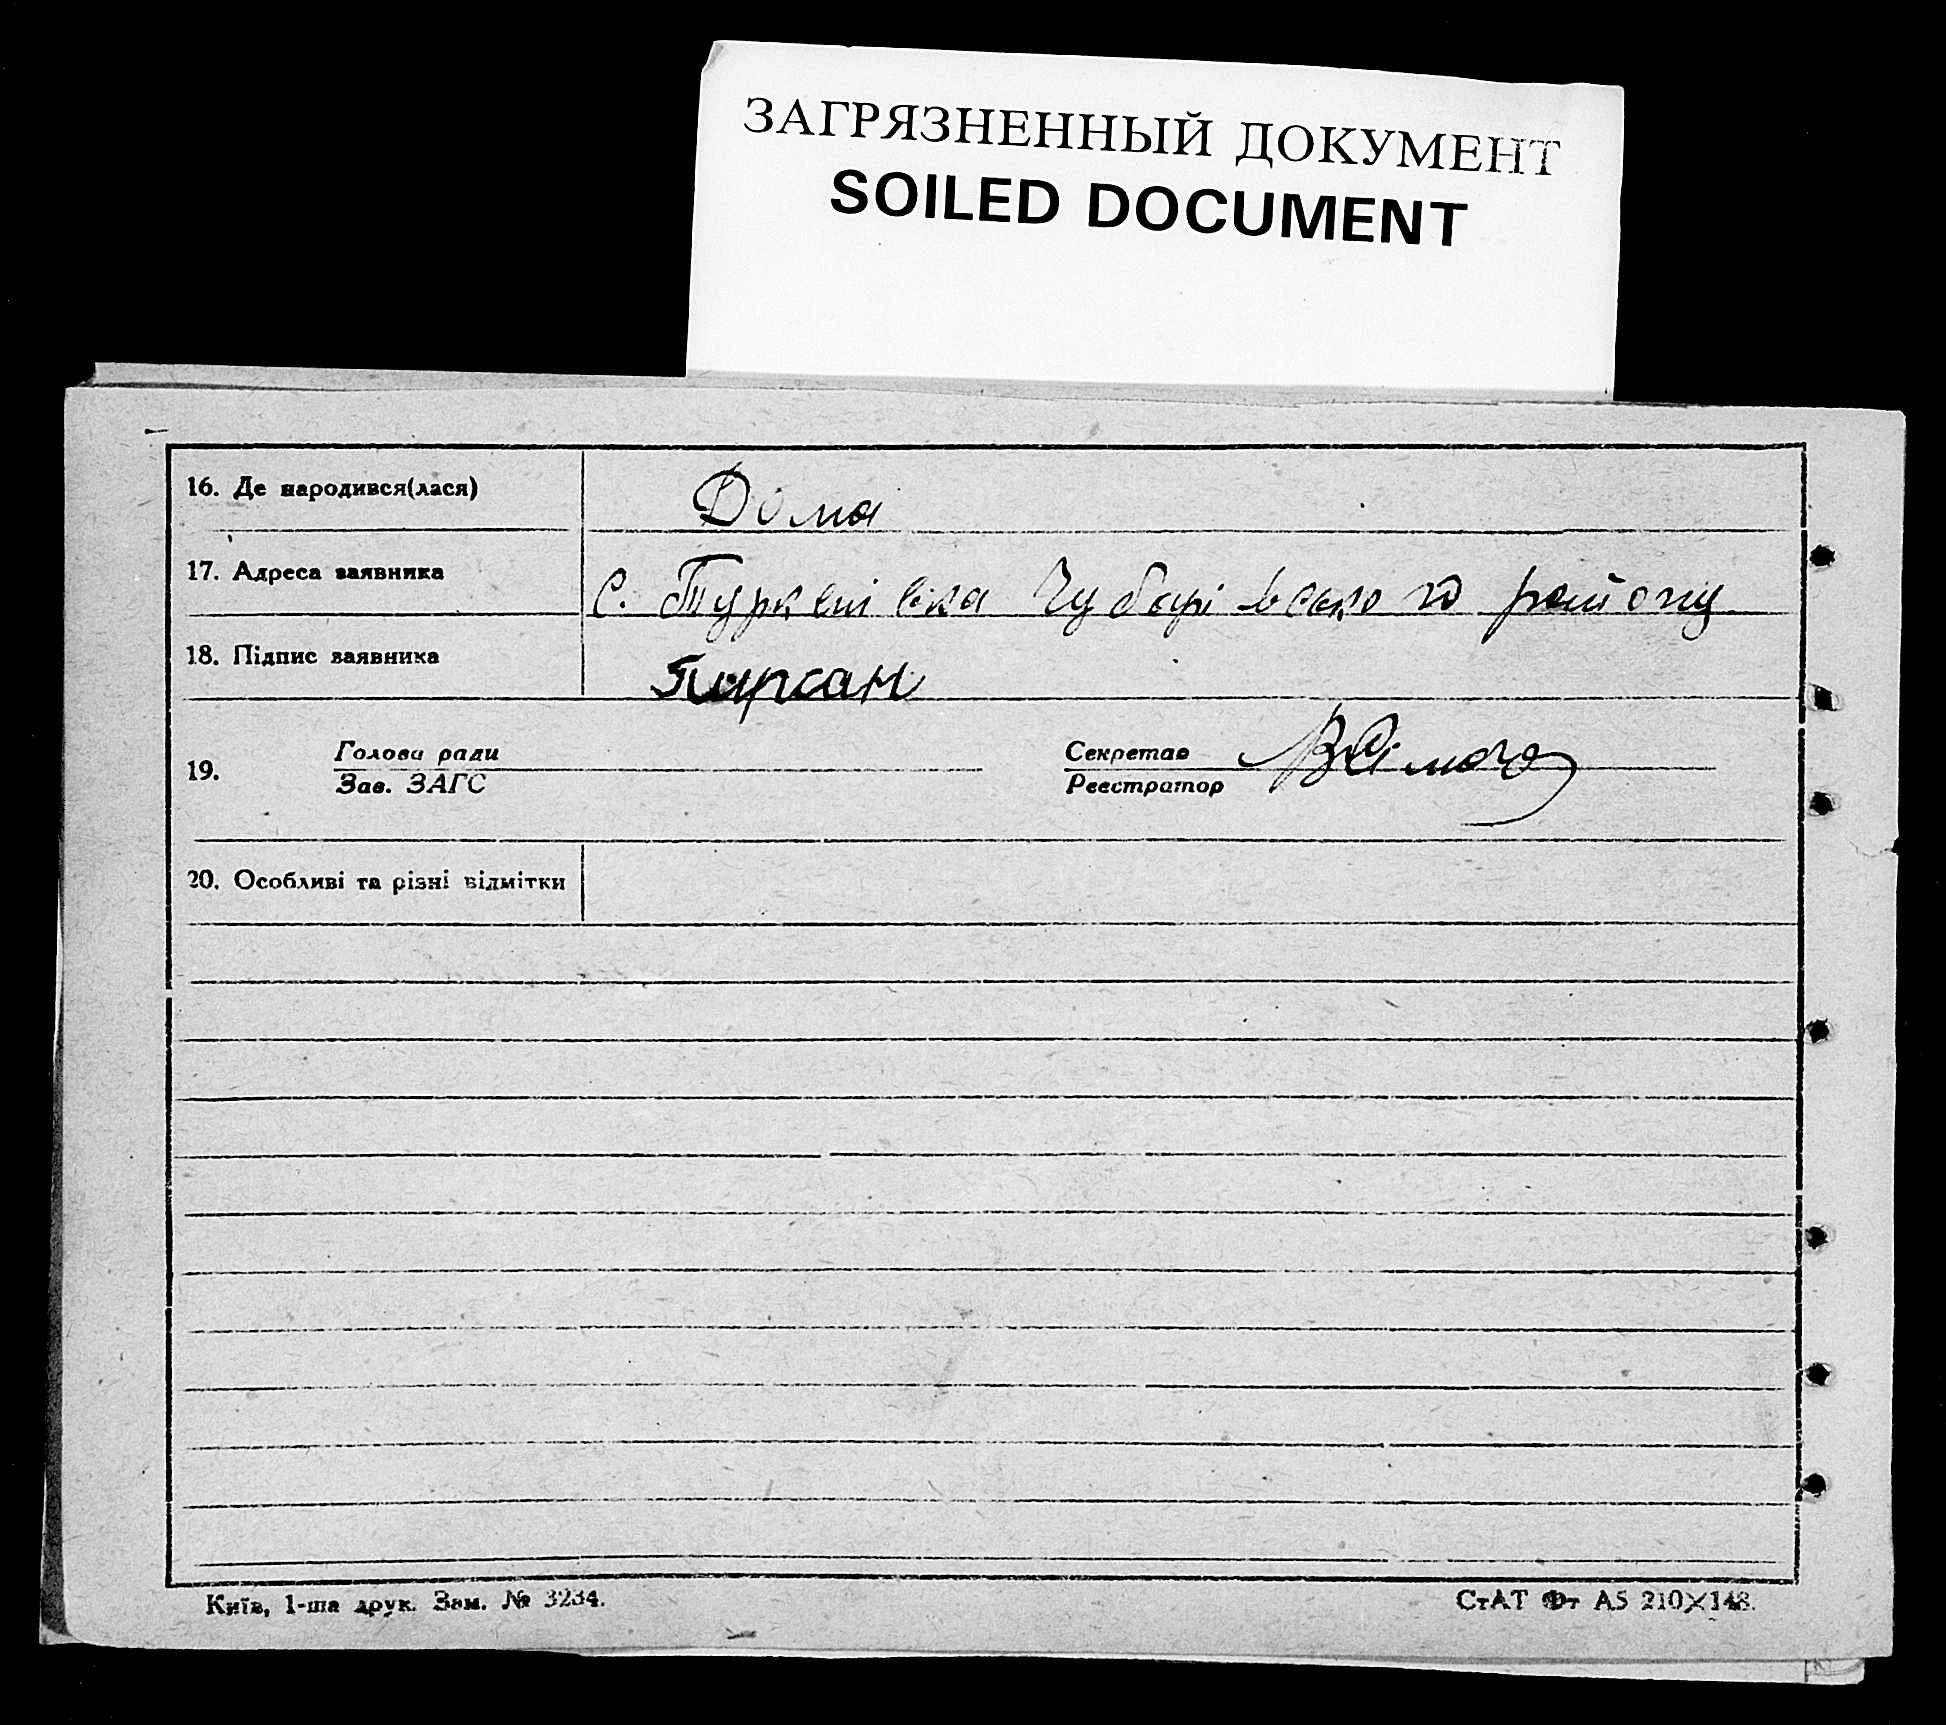 ЗАГРЯЗНЕННЫЙ ДОКУМЕНТ
SOILED DOCUMENT
16. Де народився(лася) Дома
17. Адреса заявника с. Туркенівка Чубарівського району
18. Підпис заявника Пирсан
19. Голова ради Секретар
Зав. ЗАГС Реєстратор
20. Особливі та різні відмітки
Київ, 1-ша друк. Зам. № 3234.
СтАТ Фт А5 210×148.